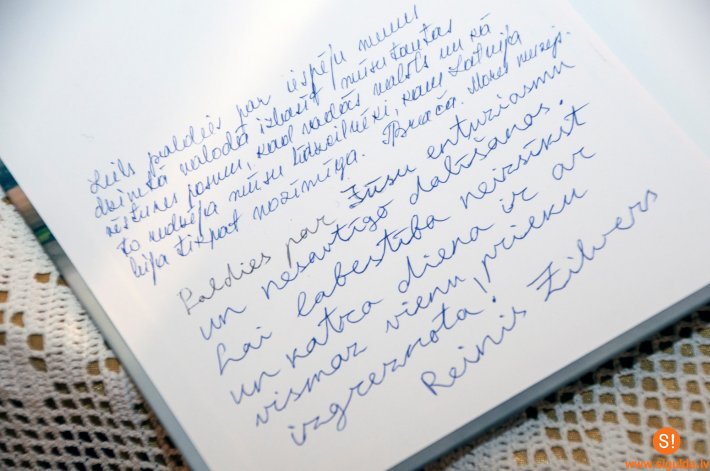 Liels paldies par iespēju mums
dzimtā valodā izbaudīt mūsu tautas
vēstures posmu, kad radās valsts un kā
to redzēja mūsu līdzcilvēki, kam Latvija
bija tikpat nozīmīga. Mores muzejs.
Paldies par Jūsu entuziasmu
un nesavtīgo dalīšanos.
Lai labestība neizsīkst
un katra diena ir ar
vismaz vienu prieku
izgreznota!
Reinis Zilvers
S!